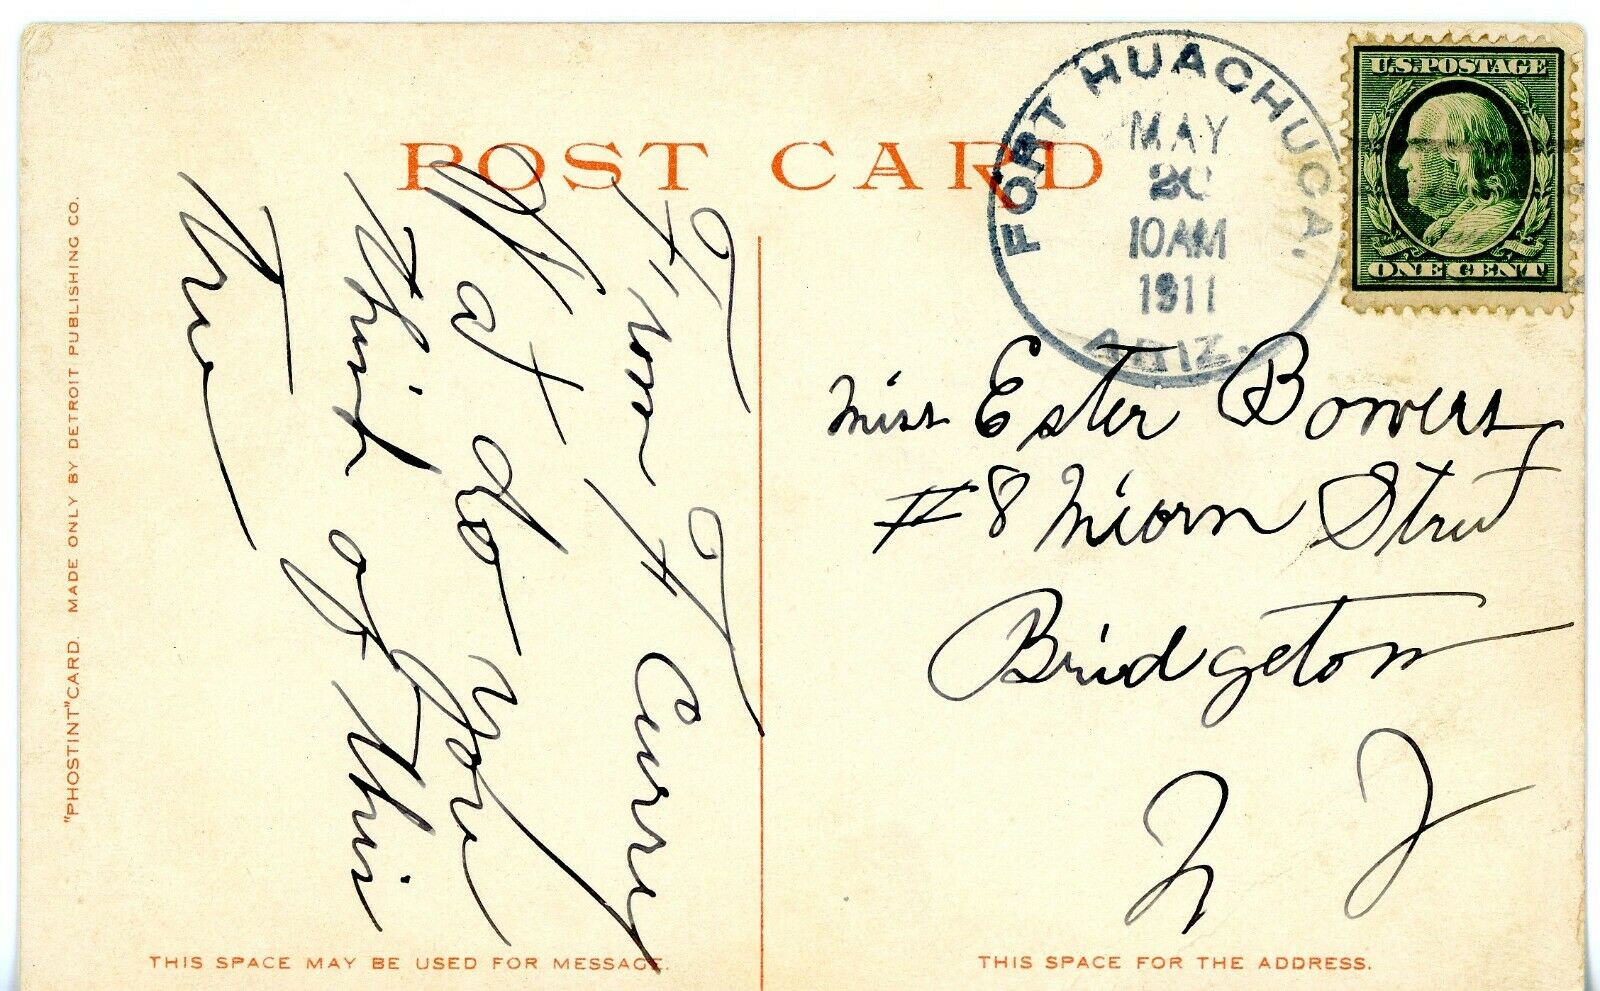 POST CARD
FORT HUACHUCA.
MAY
20
10AM
1911
ARIZ.
U.S. POSTAGE
ONE CENT
From F Curry
What do you
think of this
Tree
Miss Ester Bowers
#8 Street
Bridgeton
N J
"PHOSTINT" CARD. MADE ONLY BY DETROIT PUBLISHING CO.
THIS SPACE MAY BE USED FOR MESSAGE.
THIS SPACE FOR THE ADDRESS.